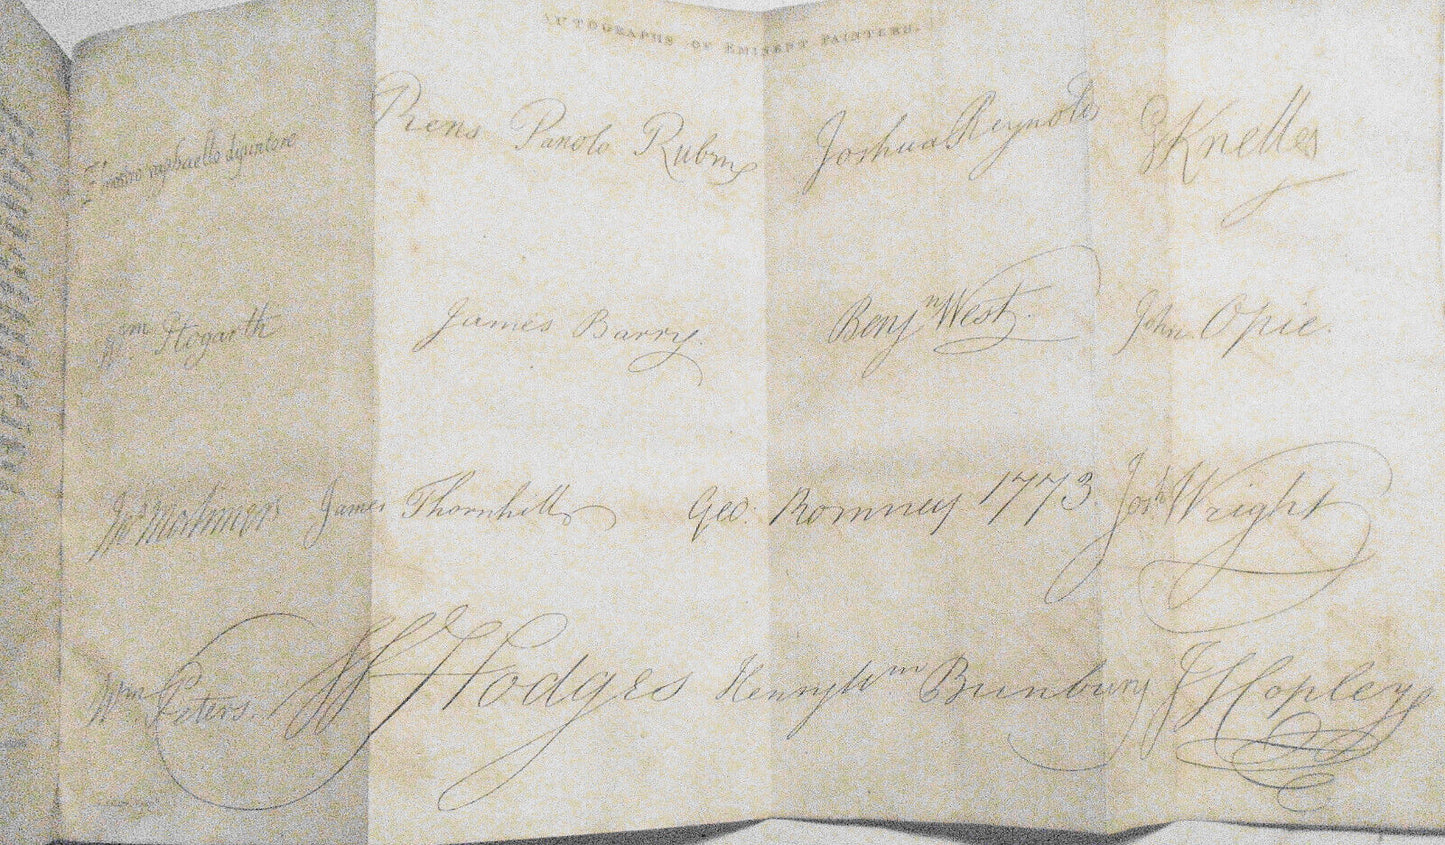 AUTOGRAPHS OF EMINENT PAINTERS.
raphaello dipintore Piens Panolo Rubens Joshua Reynolds G Kneller
Wm Hogarth James Barry. Benjn West. John Opie.
Jno Mortimer James Thornhill Geo: Romney 1773. Josh Wright
Wm Peters. W Hodges Henry Wm Bunbury J S Copley